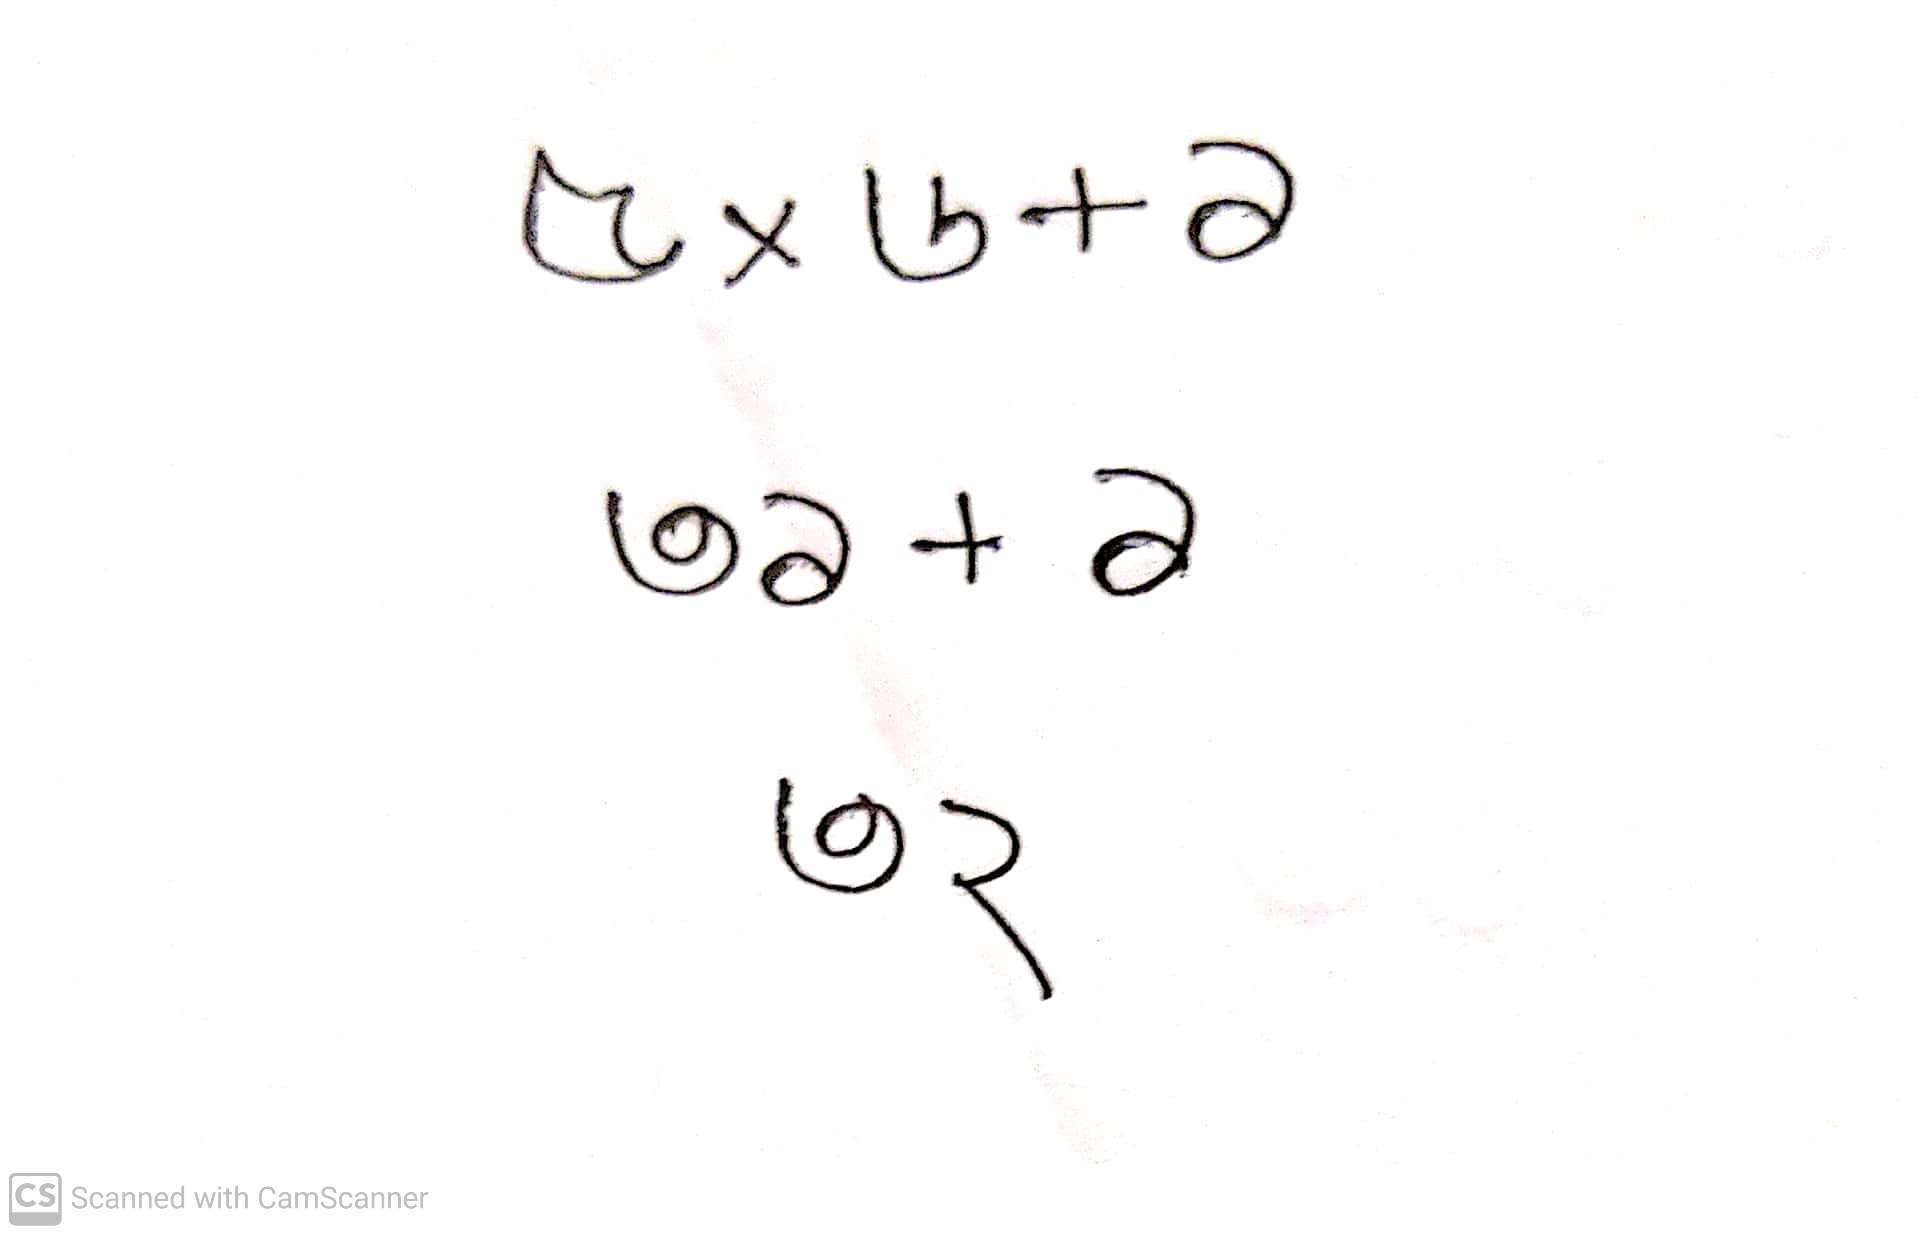 ৫ × ৬ + ১
৩১ + ১
৩২
CS Scanned with CamScanner